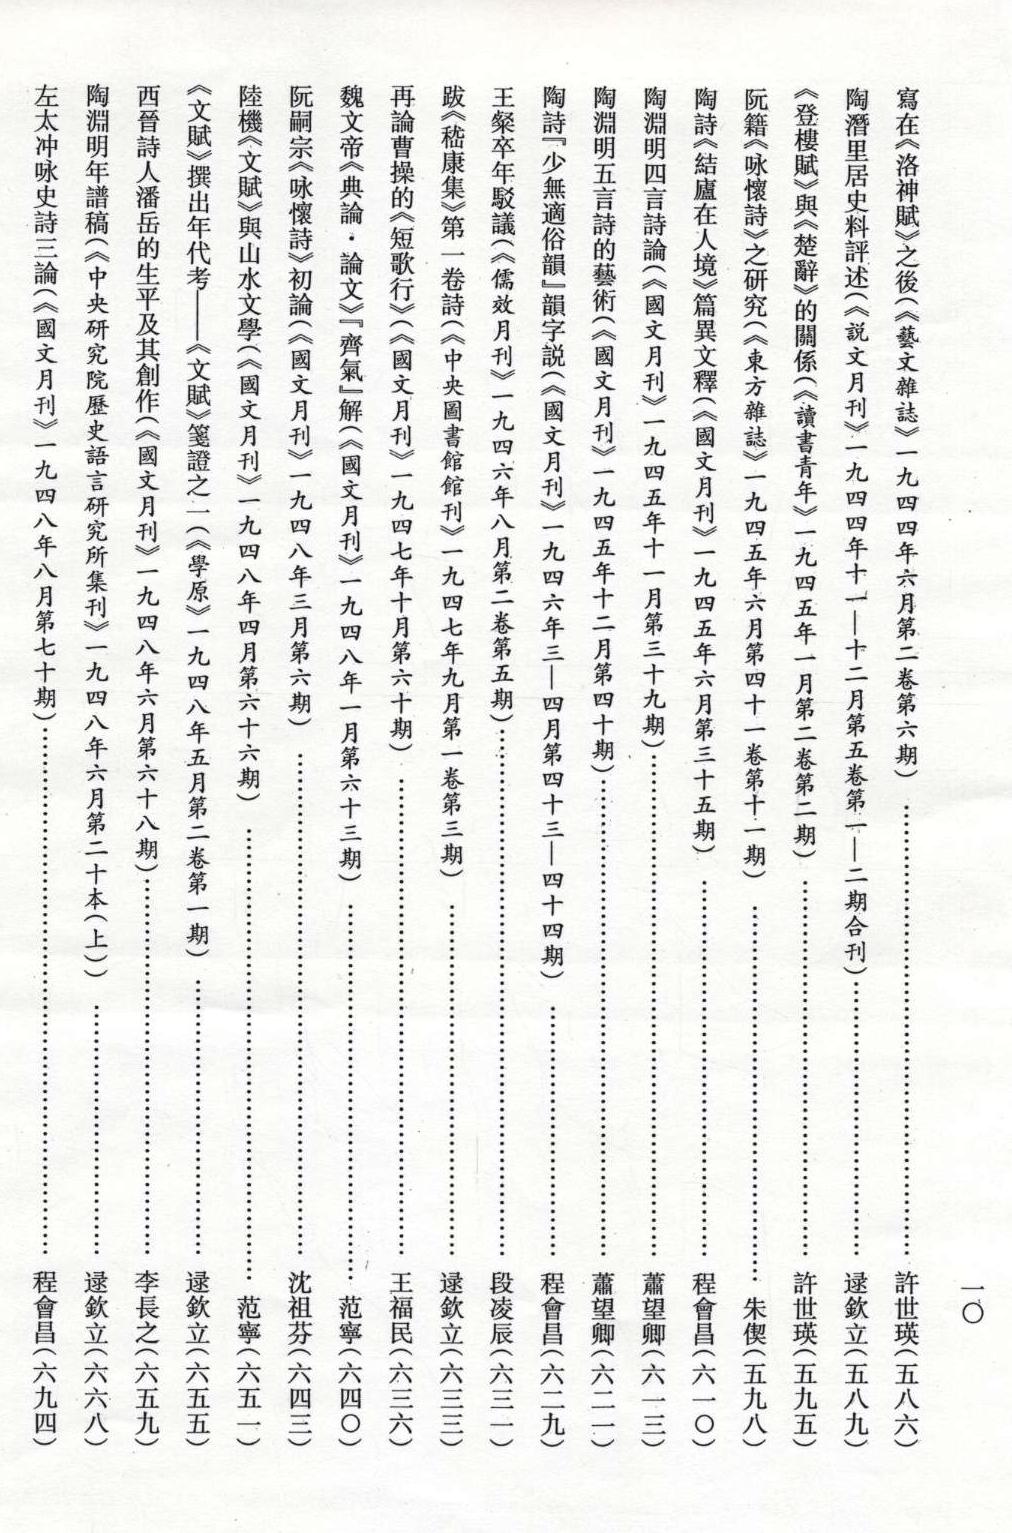 一〇
寫在《洛神賦》之後(《藝文雜誌》一九四四年六月第二卷第六期)……許世瑛(五八六)
陶潛里居史料評述(《説文月刊》一九四四年十一—十二月第五卷第一—二期合刊)……逯欽立(五八九)
《登樓賦》與《楚辭》的關係(《讀書青年》一九四五年一月第二卷第二期)……許世瑛(五九五)
阮籍《咏懷詩》之研究(《東方雜誌》一九四五年六月第四十一卷第十一期)……朱偰(五九八)
陶詩《結廬在人境》篇異文釋(《國文月刊》一九四五年六月第三十五期)……程會昌(六一〇)
陶淵明四言詩論(《國文月刊》一九四五年十一月第三十九期)……蕭望卿(六一三)
陶淵明五言詩的藝術(《國文月刊》一九四五年十二月第四十期)……蕭望卿(六二一)
陶詩『少無適俗韻』韻字説(《國文月刊》一九四六年三—四月第四十三—四十四期)……程會昌(六二九)
王粲卒年駁議(《儒效月刊》一九四六年八月第二卷第五期)……段凌辰(六三一)
跋《嵇康集》第一卷詩(《中央圖書館館刊》一九四七年九月第一卷第三期)……逯欽立(六三三)
再論曹操的《短歌行》(《國文月刊》一九四七年十月第六十期)……王福民(六三六)
魏文帝《典論·論文》『齊氣』解(《國文月刊》一九四八年一月第六十三期)……范寧(六四〇)
阮嗣宗《咏懷詩》初論(《國文月刊》一九四八年三月第六期)……沈祖芬(六四三)
陸機《文賦》與山水文學(《國文月刊》一九四八年四月第六十六期)……范寧(六五一)
《文賦》撰出年代考——《文賦》箋證之一(《學原》一九四八年五月第二卷第一期)……逯欽立(六五五)
西晉詩人潘岳的生平及其創作(《國文月刊》一九四八年六月第六十八期)……李長之(六五九)
陶淵明年譜稿(《中央研究院歷史語言研究所集刊》一九四八年六月第二十本(上))……逯欽立(六六八)
左太冲咏史詩三論(《國文月刊》一九四八年八月第七十期)……程會昌(六九四)